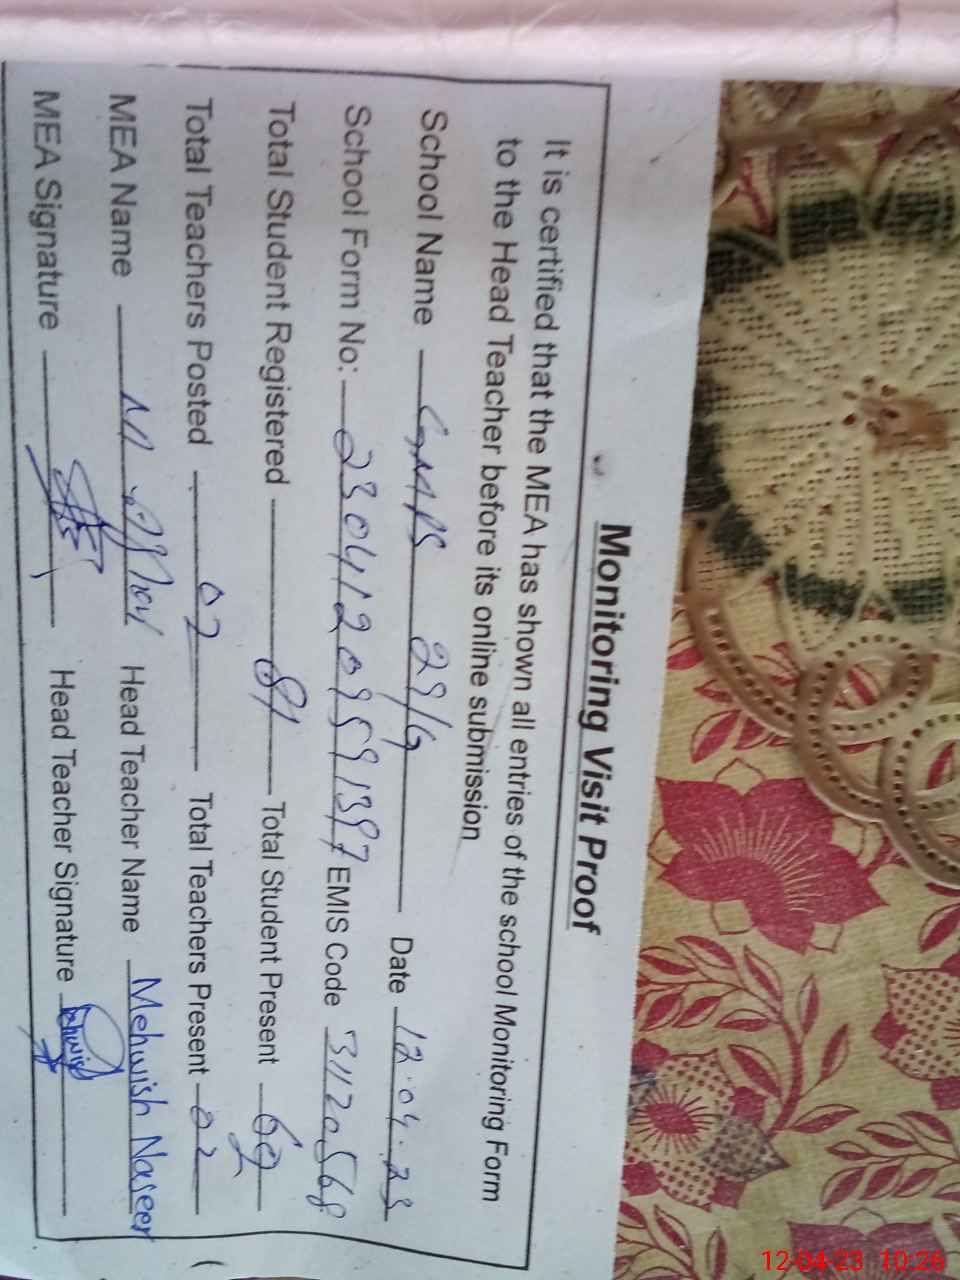 Monitoring Visit Proof
It is certified that the MEA has shown all entries of the school Monitoring Form
to the Head Teacher before its online submission
School Name GMPS 29/G Date 12.04.23
School Form No: 23041209591397 EMIS Code 31120568
Total Student Registered 81 Total Student Present 69
Total Teachers Posted 02 Total Teachers Present 02
MEA Name M. Head Teacher Name Mehwish Naseer
MEA Signature Head Teacher Signature Mehwish
12-04-23 10:26